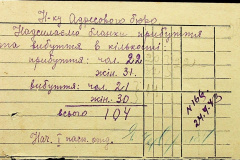 Н-ку Адресового бюро
Надсилаємо бланки прибуття
та вибуття в кількості:
прибуття: чол. 22
жін. 31.
вибуття: чол. 21
жін. 30
всього 104
№166
24.4.43
Нач. I паса. отд.